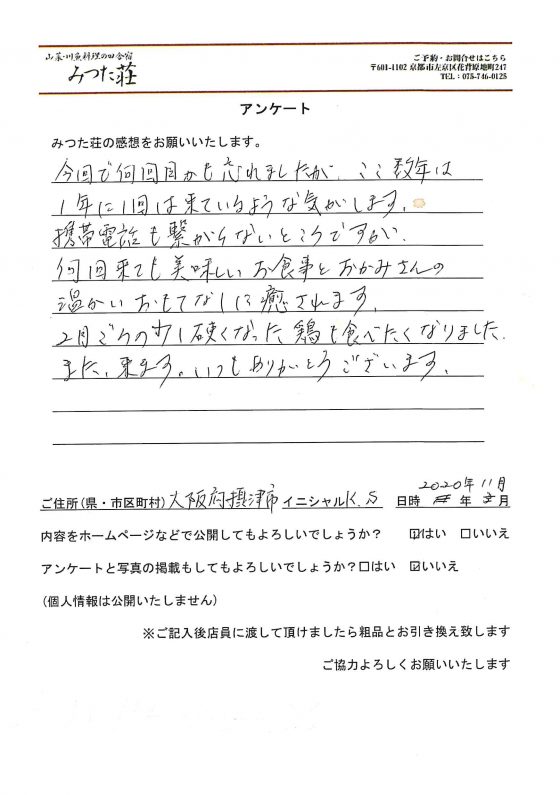 山菜・川魚料理の田舎宿
みつた荘
ご予約・お問合せはこちら
〒601-1102 京都市左京区花背原地町247
TEL：075-746-0125
アンケート
みつた荘の感想をお願いいたします。
今回で何回目かも忘れましたが、ここ数年は
1年に1回は来ているような気がします。
携帯電話も繋がらないところですが、
何回来ても美味しいお食事とおかみさんの
温かいおもてなしに癒されます。
2月ごろの少し硬くなった鶏も食べたくなりました。
また、来ます。いつもありがとうございます。
2020年11月
ご住所(県・市区町村)大阪府摂津市 イニシャルK.S 日時 年 月
内容をホームページなどで公開してもよろしいでしょうか？ ☑はい □いいえ
アンケートと写真の掲載もしてもよろしいでしょうか？□はい ☑いいえ
(個人情報は公開いたしません)
※ご記入後店員に渡して頂けましたら粗品とお引き換え致します
ご協力よろしくお願いいたします